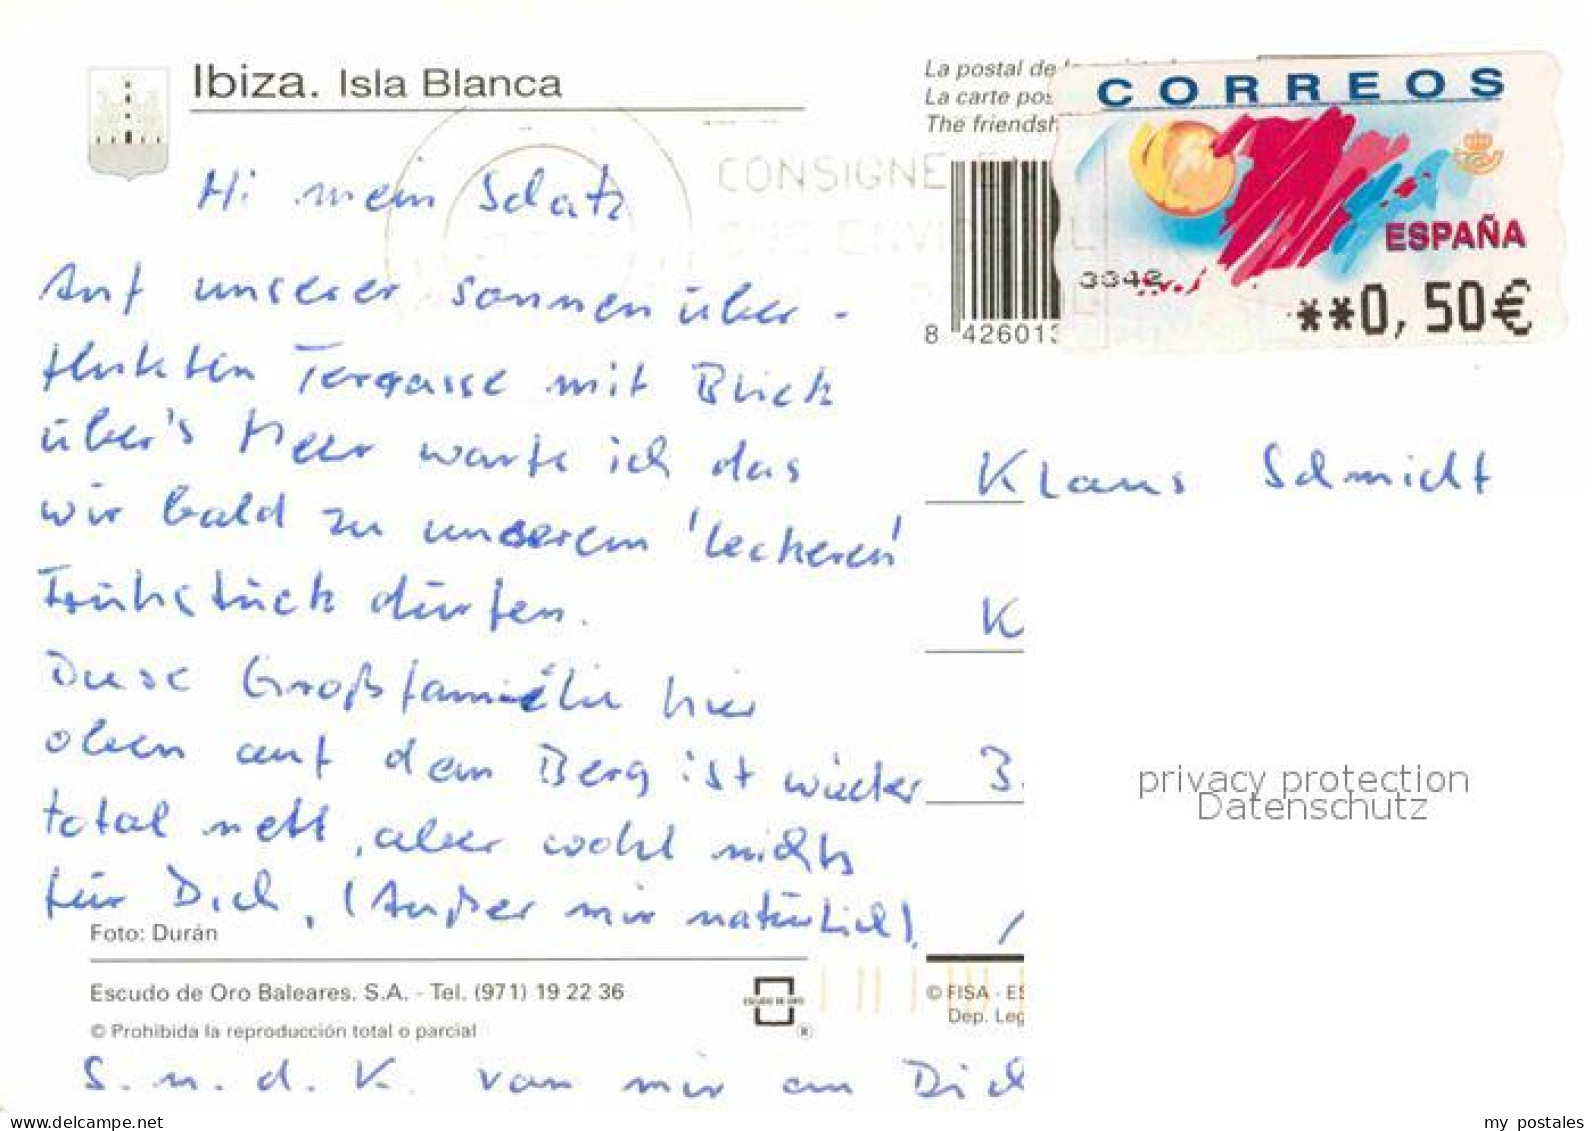 Ibiza. Isla Blanca
La postal de
La carte pos
The friendsh
CORREOS
ESPAÑA
3342
**0,50€
CONSIGNE
8 42601
Hi mein Schatz
Auf unserer sonnenüber-
fluteten Terrasse mit Blick
über's Meer warte ich das
wir bald zu unserem 'leckeren'
Frühstück dürfen.
Diese Großfamilie hier
oben auf dem Berg ist wieder
total nett, aber wohl nichts
für Dich, (Außer mir natürlich).
Klaus Schmidt
K
3
privacy protection
Datenschutz
Foto: Durán
Escudo de Oro Baleares. S.A. - Tel. (971) 19 22 36
© Prohibida la reproducción total o parcial
ESCUDO DE ORO
®
© FISA - ES
Dep. Leg
S. u. d. K. von mir an Dich
www.delcampe.net
my postales